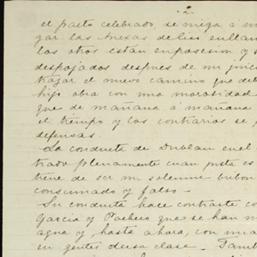 2.
el pacto celebrado, se niega a en
gar las presas de los
los otros están en posesion y
despojados despues de mi
trazar el nuevo camino que de
hijo obra con una morosidad
que de mañana á mañana
el tiempo y los contrarios se
defensas.
La conducta de Dublan en el
trado plenamente cuan justa es
tiene de ser mi solemne bribon
consumado y falso.
Su conducta hace contraste co
García y Pacheco que se han m
agua y hasta ahora, con
en gentes de esa clase. Tamb